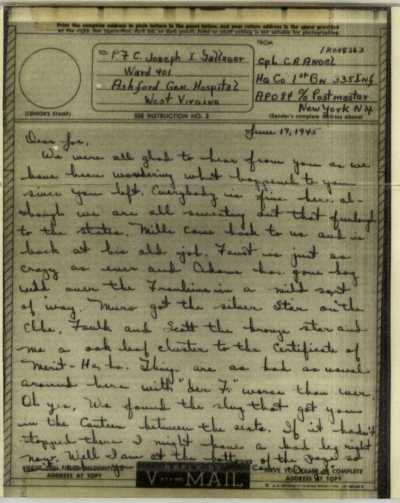 Print the complete address in plain letters in the panel below, and your return address in the space provided
To P.F.C. Joseph I Gallager
Ward 401
Ashford Gen. Hospital
West Virginia
(CENSOR'S STAMP)
SEE INSTRUCTION NO. 2
FROM
Cpl. C.R.
Hq Co 1st Bn 335 Inf
APO 84 % Postmaster
New York N.Y.
(Sender's complete address above)
June 19, 1945
Dear Joe,
We were all glad to hear from you as we
have been wondering what happened to you
since you left. Everybody is fine here al-
though we are all sweating out that furlough
to the states. Mills came back to us and is
back at his old job. Faust is just as
crazy as ever and Adams has gone hog
wild over the in a mild sort
of way. Munro got the silver star on the
Elbe, Faulk and Scott the bronze star and
me a oak leaf cluster to the Certificate of
Merit - Ha, ha. Things are as bad as usual
around here with worse than ever.
Oh yes, We found the slug that got you
in the Canteen between the seats. If it hadn't
stopped there I might have a bad leg right
now. Well I am at the bottom of the page so
HAVE YOU FILLED IN COMPLETE
ADDRESS AT TOP?
REPLY BY
V...-MAIL
HAVE YOU FILLED IN COMPLETE
ADDRESS AT TOP?